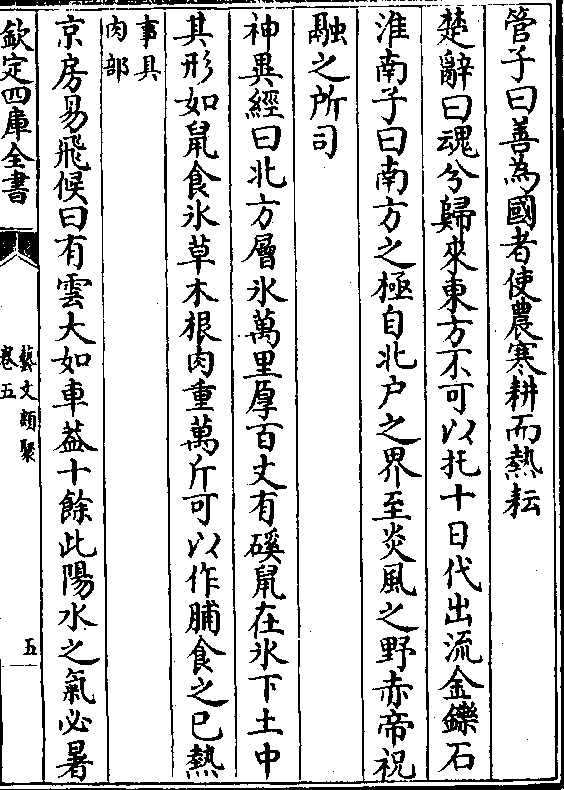 管子曰善為國者使農寒耕而熱耘
楚辭曰魂兮歸來東方不可以托十日代出流金鑠石
淮南子曰南方之極自北户之界至炎風之野赤帝祝
融之所司
神異經曰北方層氷萬里厚百丈有磎鼠在氷下土中
其形如鼠食氷草木根肉重萬斤可以作脯食之已熱
事具
肉部
京房易飛候曰有雲大如車葢十餘此陽水之氣必暑
欽定四庫全書
藝文類聚
卷五
五